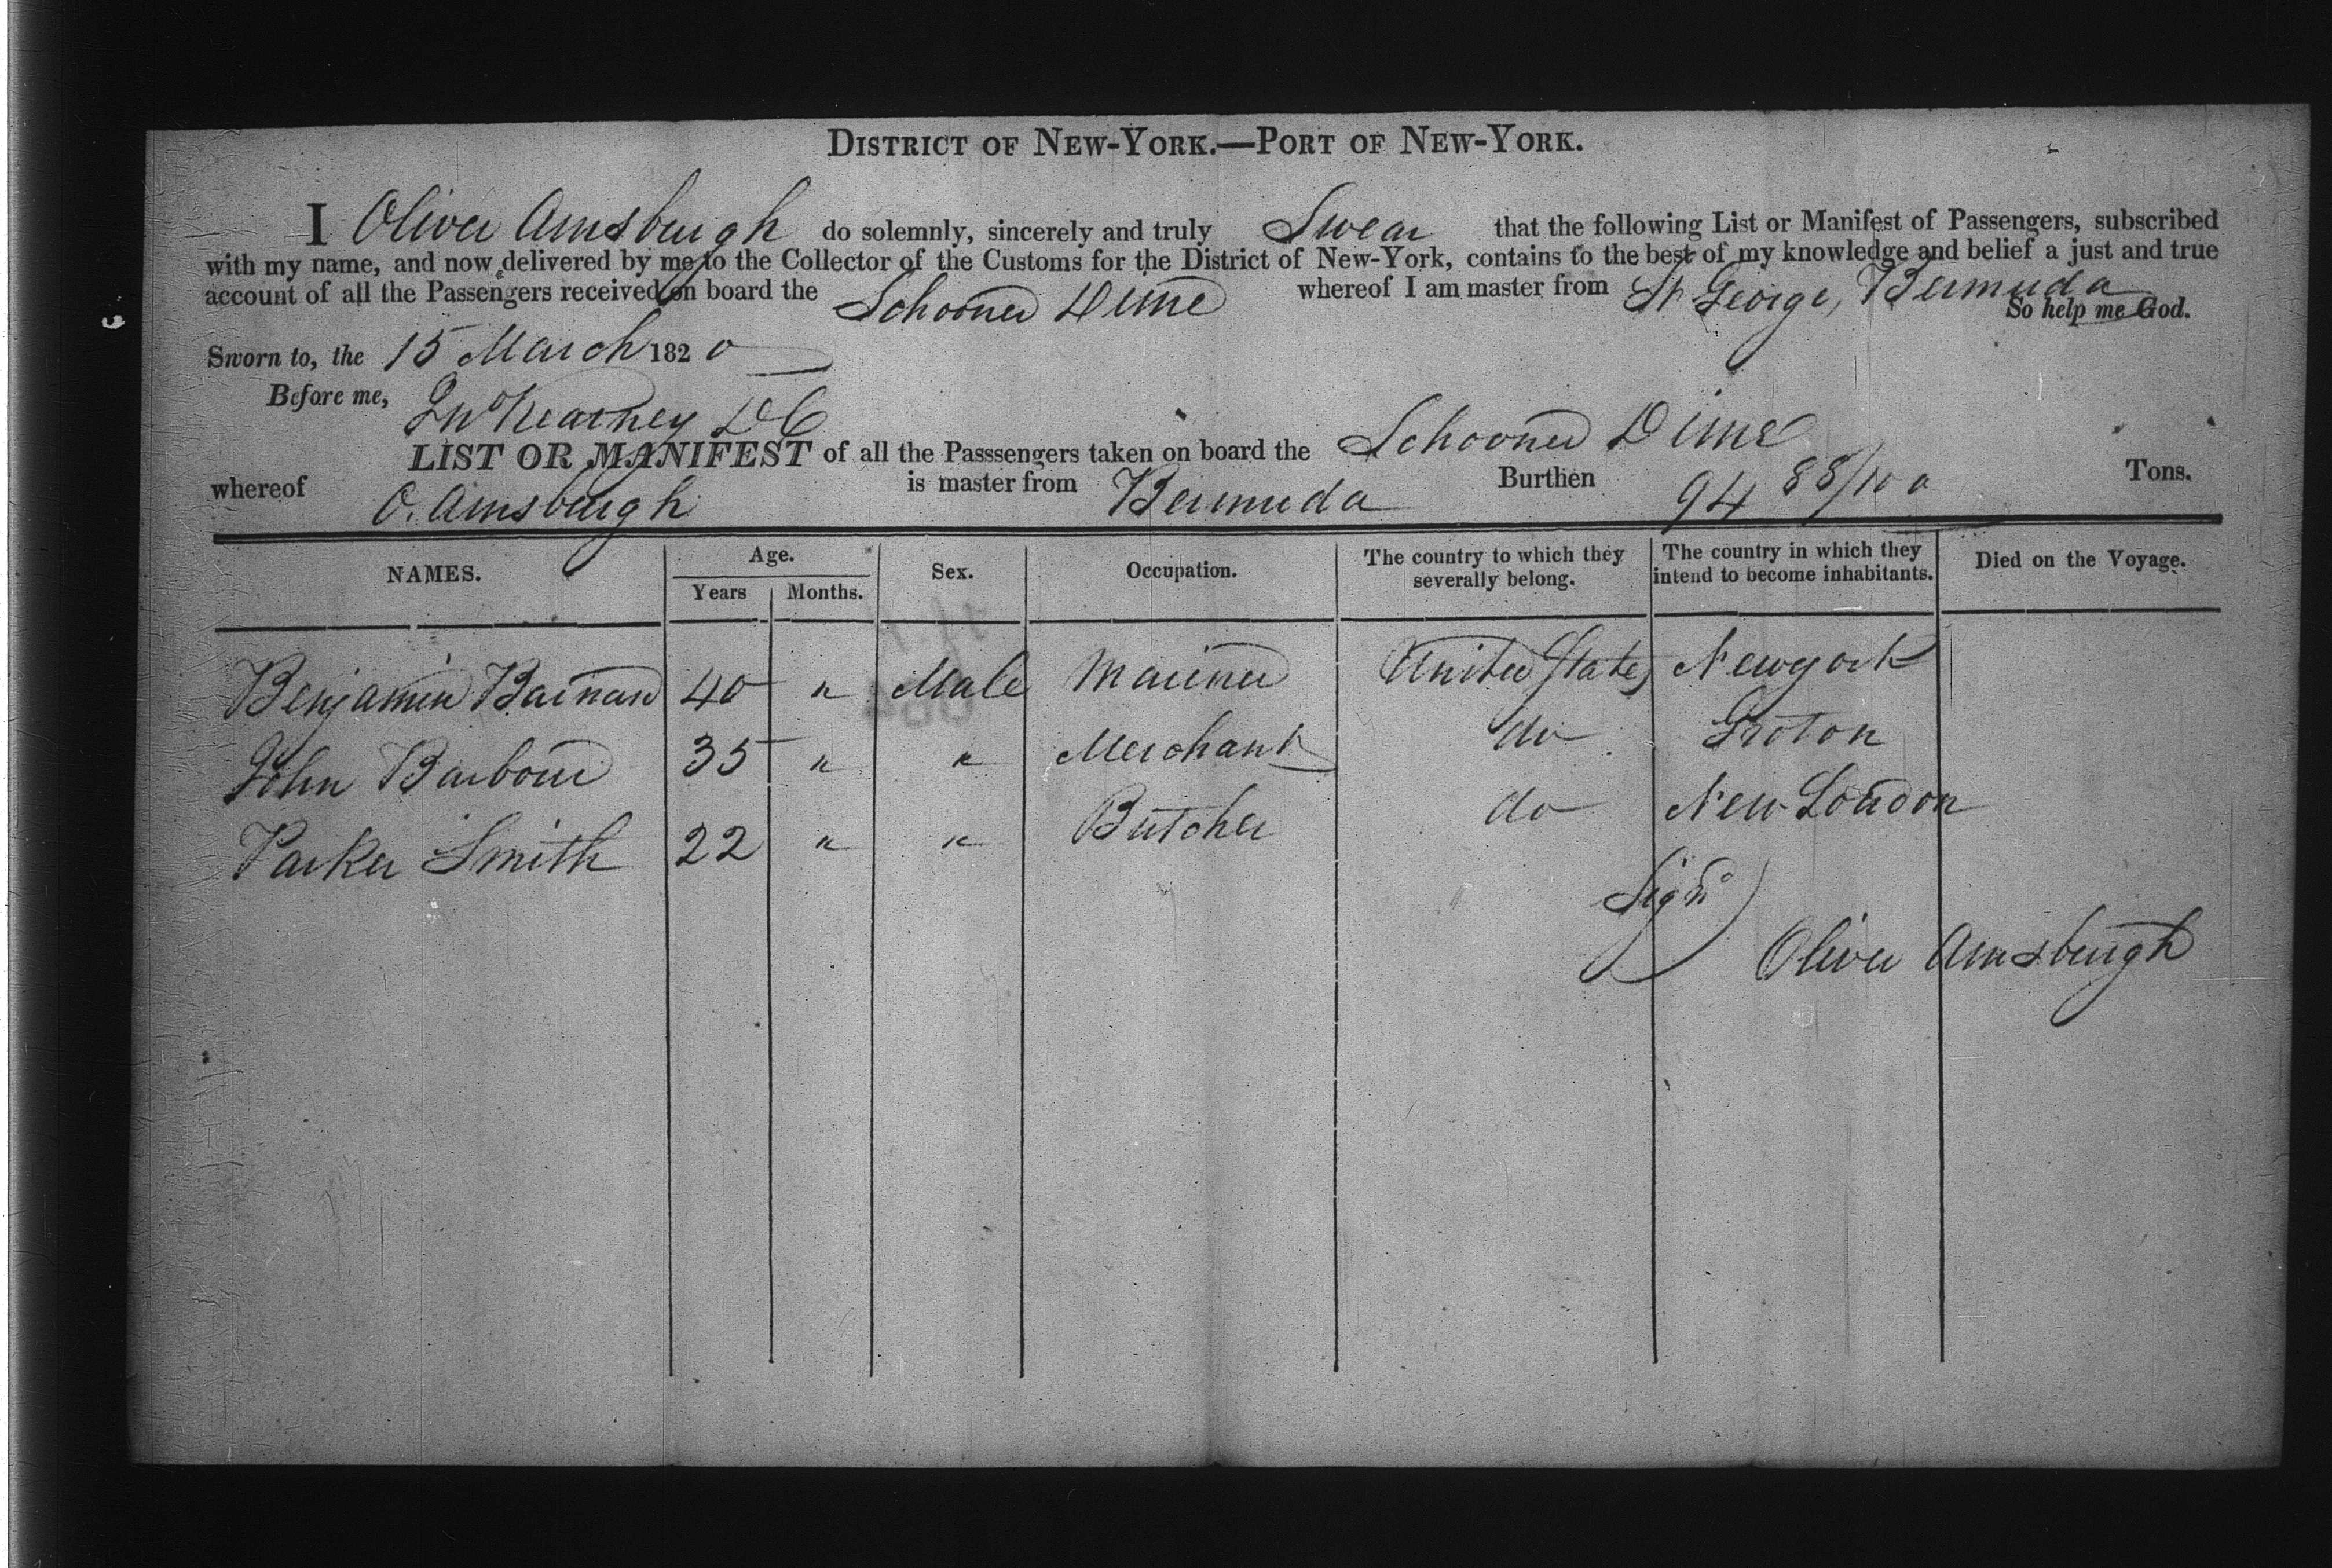 DISTRICT OF NEW-YORK.—PORT OF NEW-YORK.
I Oliver Amsburgh do solemnly, sincerely and truly Swear that the following List or Manifest of Passengers, subscribed
with my name, and now delivered by me to the Collector of the Customs for the District of New-York, contains to the best of my knowledge and belief a just and true
account of all the Passengers received on board the Schooner Dime whereof I am master from St George, Bermuda
So help me God.
Sworn to, the 15 March 1820
Before me, Jno Kearney DC
LIST OR MANIFEST of all the Passsengers taken on board the Schooner Dime
whereof O. Amsburgh is master from Bermuda Burthen 94 88/100 Tons.
NAMES. Age. Years Months. Sex. Occupation. The country to which they severally belong. The country in which they intend to become inhabitants. Died on the Voyage.
Benjamin 40 " Male Mariner United States Newyork
John Barbour 35 " " Merchant do Groton
Parker Smith 22 " " Butcher do New London
Signd
Oliver Amsburgh